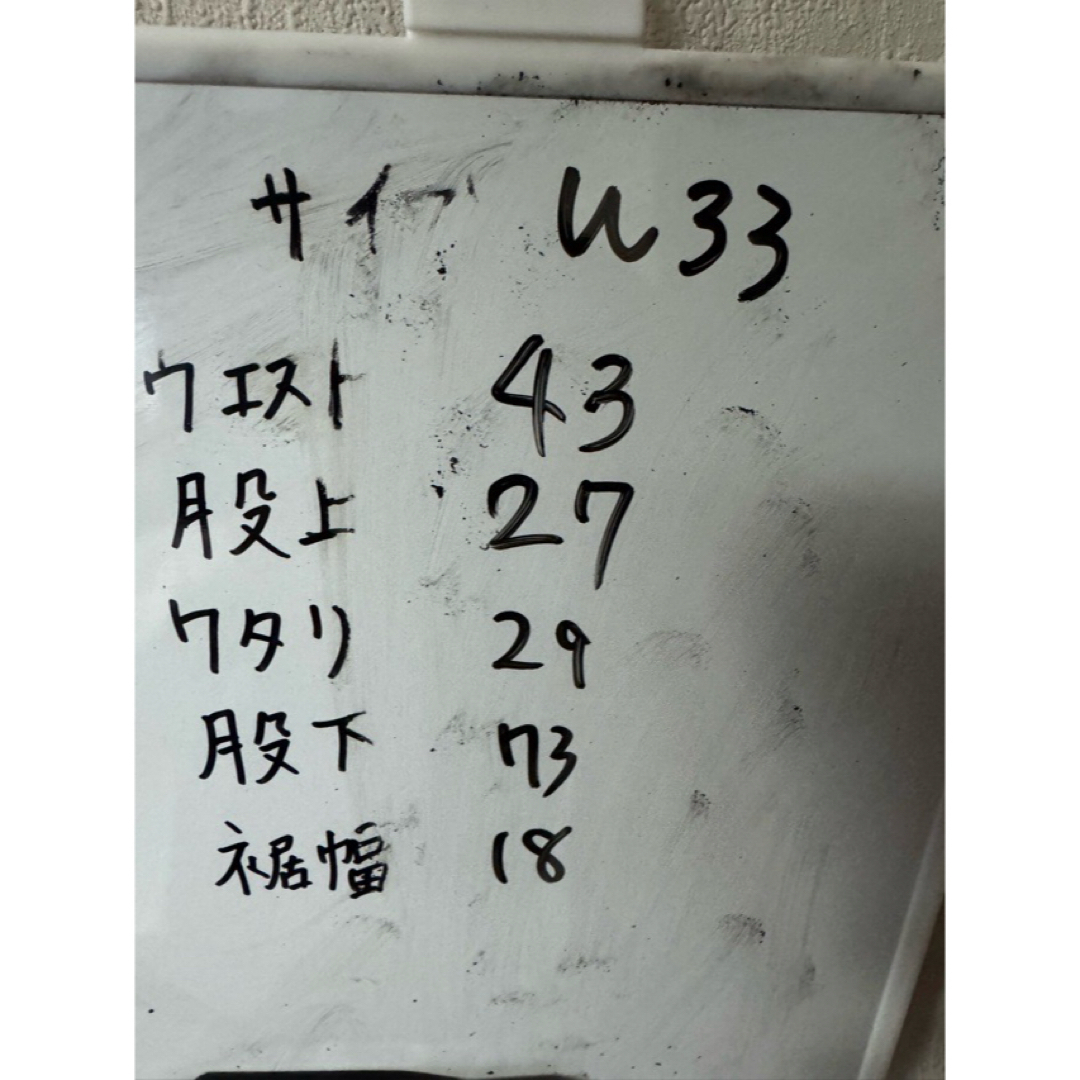 サイズ W33
ウエスト 43
股上 27
ワタリ 29
股下 73
裾幅 18